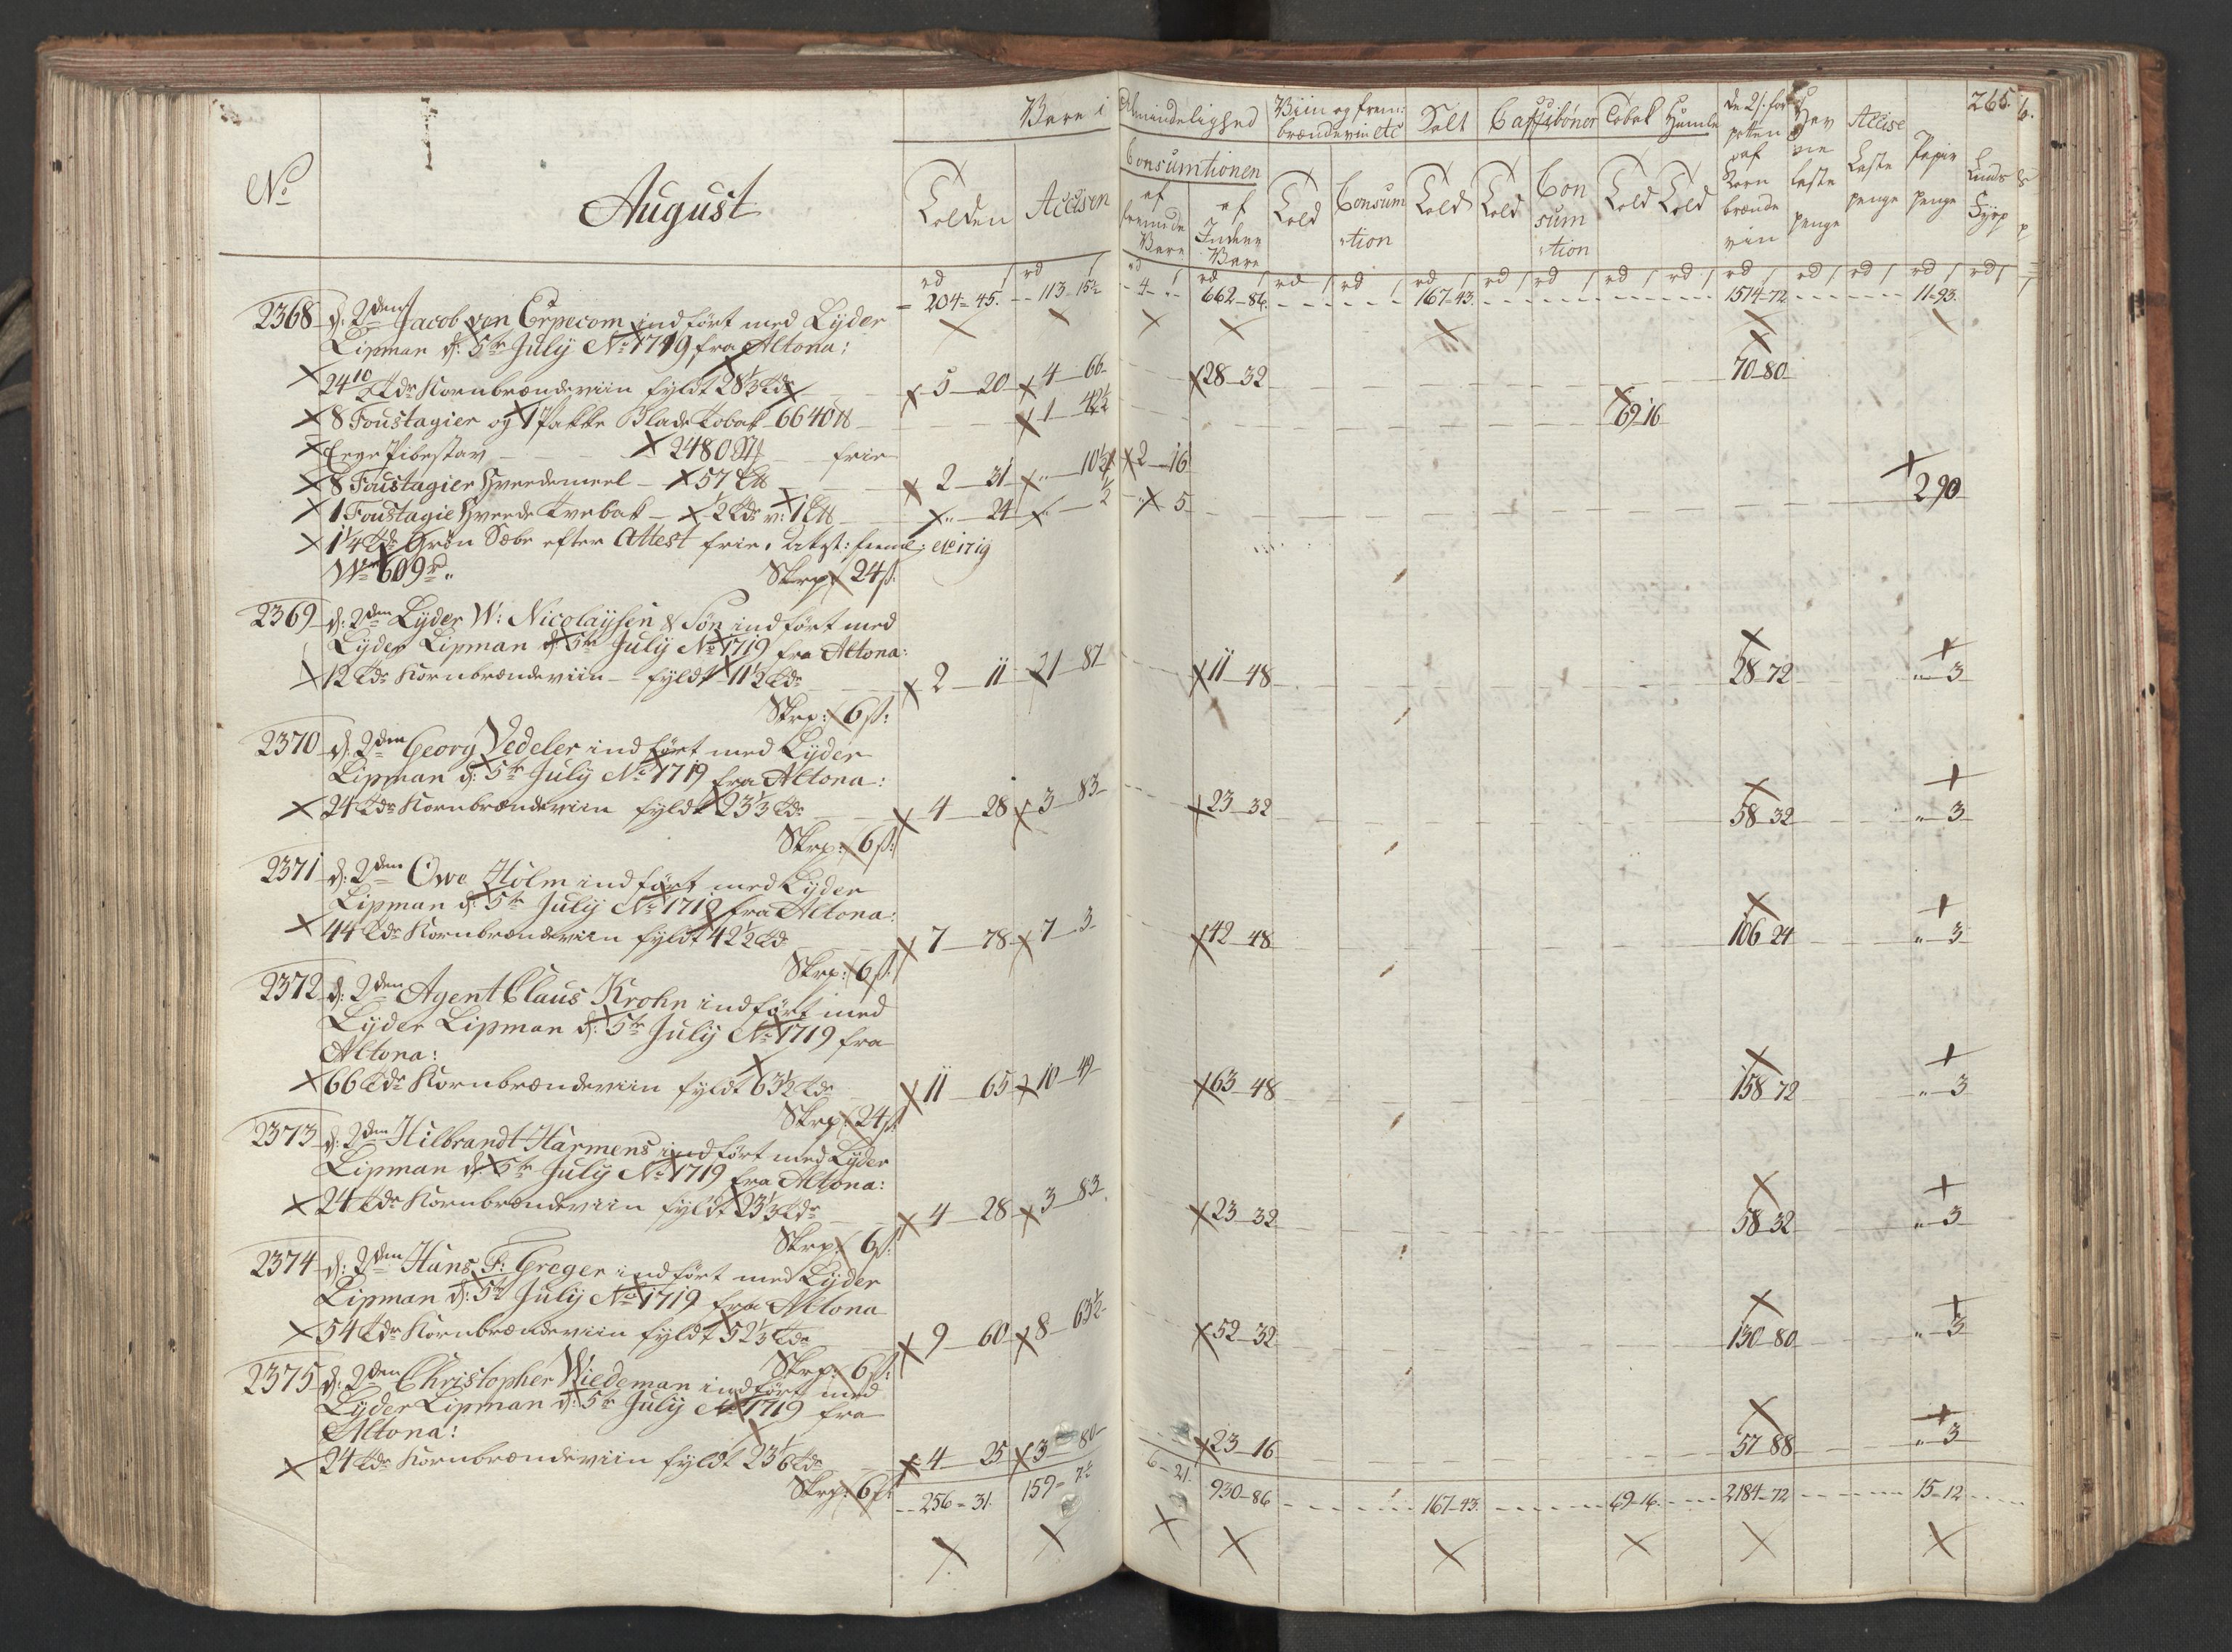 265.
Vare i Almindelighed
Viin og frem: brændeviin etc
Salt
Tobak
Humle
de 2 s. for potten af Korn brændeviin
Havne laste penge
Accise Laste penge
Papir penge
No
August
Tolden
Accisen
Consumtionen
af fremmede Vare
af Indenl Vare
Told
Consumtion
Told
Told
Consumtion
Told
Told
rd rd rd rd rd rd rd rd rd rd rd rd rd rd rd rd
204 = 45. 113 - 15½ 4 - " 662 - 86. 167 - 43. 1574 - 72 11 - 93.
2368 d: 2den Jacob von Erpecom indført med Lyder
Lipman d: 5te July No 1719 fra Altona:
24 Tdr Kornbrændeviin fyldt 28⅓ Tdr 5 - 20 4 - 66 28 - 32 70 - 80
8 Foustagier og 1 Pakke Blade Tobak 6640 tt 1 - 42½ 69 - 16
Pibestav 2480 frie
8 Foustagier Hveedemeel 57 2 - 31 " - 10½ 2 - 16 2 90
1 Foustagie Hveede Tvebak ½ Tdr v: 1 " - 24 " - ½ " - 5
1¼ Tdr Grøn Sæbe efter Attest frie
609
Skrp: 24 s:
2369 d: 2den Lyder W: Nicolaysen & Søn indført med
Lyder Lipman d: 5te July No 1719 fra Altona:
12 Tdr Kornbrændeviin fyldt 11½ Tdr 2 - 11 1 - 87 11 - 48 28 - 72 " - 3
Skrp: 6 s:
2370 d: 2den Georg Vedeler indført med Lyder
Lipman d: 5te July No 1719 fra Altona:
24 Tdr Kornbrændeviin fyldt 23⅓ Tdr 4 - 28 3 - 83 23 - 32 58 - 32 " - 3
Skrp: 6 s:
2371 d: 2den Owe Holm indført med Lyder
Lipman d: 5te July No 1719 fra Altona:
44 Tdr Kornbrændeviin fyldt 42½ Td 7 - 78 7 - 3 42 - 48 106 - 24 " - 3
Skrp: 6 s:
2372 d: 2den Agent Claus Krohn indført med
Lyder Lipman d: 5te July No 1719 fra
Altona:
66 Tdr Kornbrændeviin fyldt 63½ Tdr 11 - 65 10 - 49 63 - 48 158 - 72 " - 3
Skrp: 24 s:
2373 d: 2den Hilbrandt Harmens indført med Lyder
Lipman d: 5te July No 1719 fra Altona:
24 Tdr Kornbrændeviin fyldt 23⅓ Tdr 4 - 28 3 - 83 23 - 32 58 - 32 " - 3
Skrp: 6 s:
2374 d: 2den Hans F: Greger indført med Lyder
Lipman d: 5te July No 1719 fra Altona
54 Tdr Kornbrændeviin fyldt 52⅓ Tdr 9 - 60 8 - 63½ 52 - 32 130 - 80 " - 3
Skrp: 6 s:
2375 d: 2den Christopher Wiedeman indført med
Lyder Lipman d: 5te July No 1719 fra
Altona:
24 Tdr Kornbrændeviin fyldt 23⅙ Tdr 4 - 25 3 - 80 23 - 16 57 - 88 " - 3
Skrp: 6 s:
256 = 31. 159 = 7½ 6 - 21. 930 - 86 167 - 43. 69 - 16. 2184 - 72 15 - 12